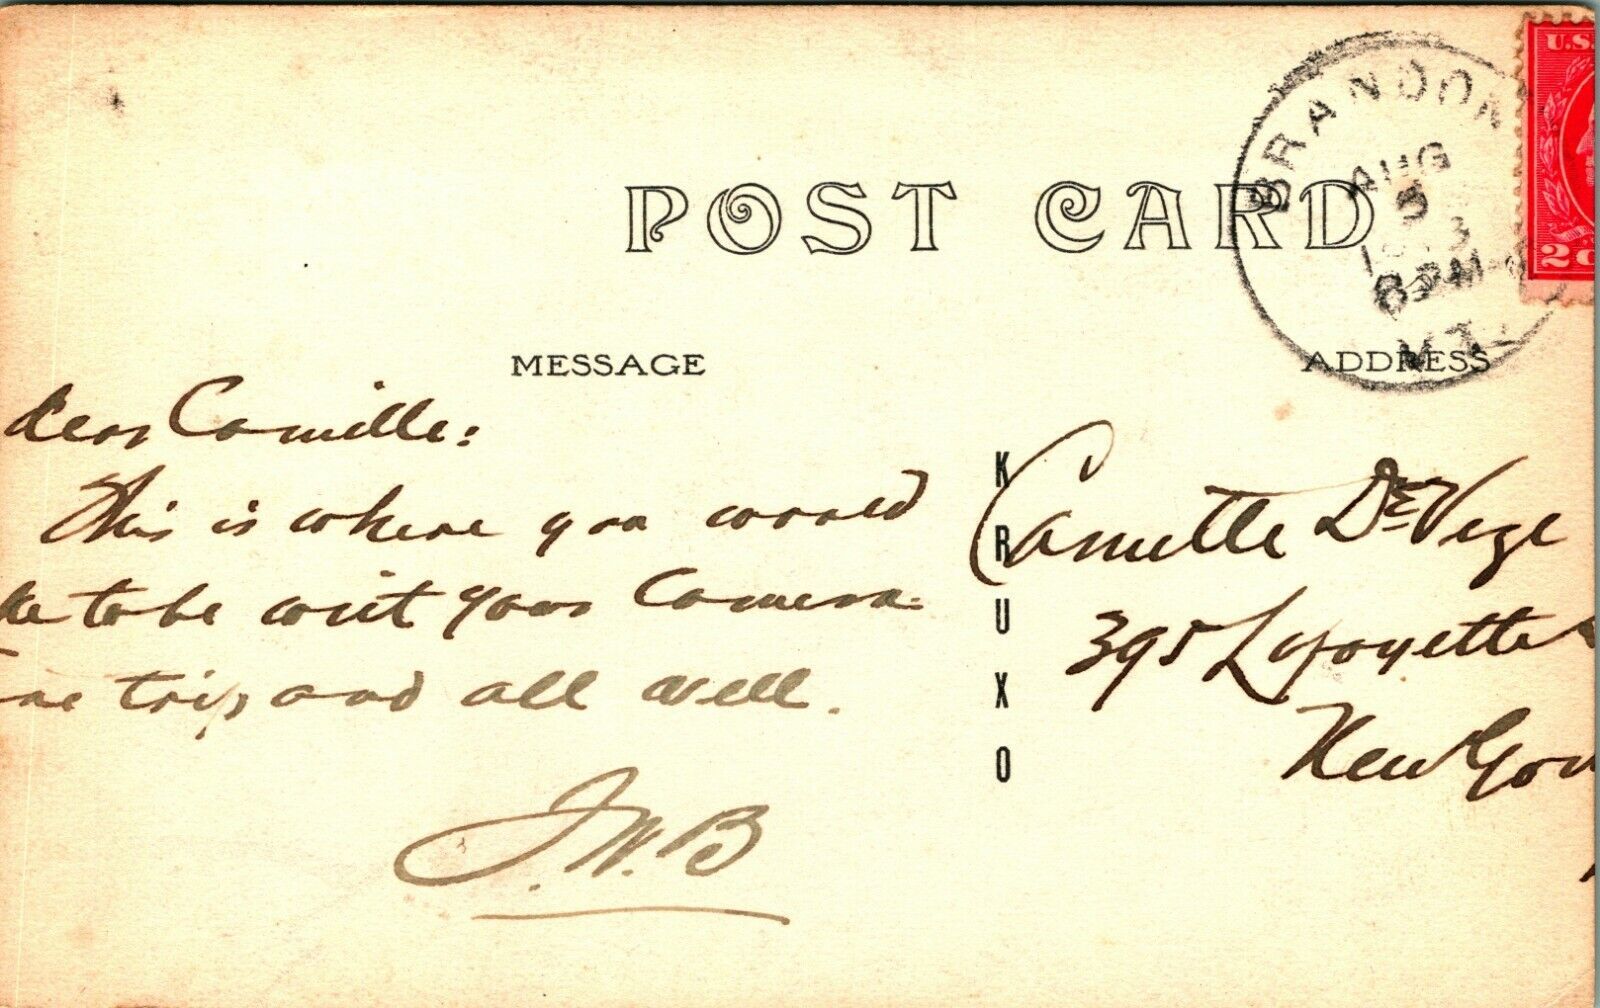 POST CARD
BRANDON
AUG
3
6 PM
VT.
U.S.
2
MESSAGE
ADDRESS
dear Camille:
This is where you would
to be wit your Camera.
trip and all well.
J.W.B
KRUXO
Camille De Veze
395 Lafayette
New Yor